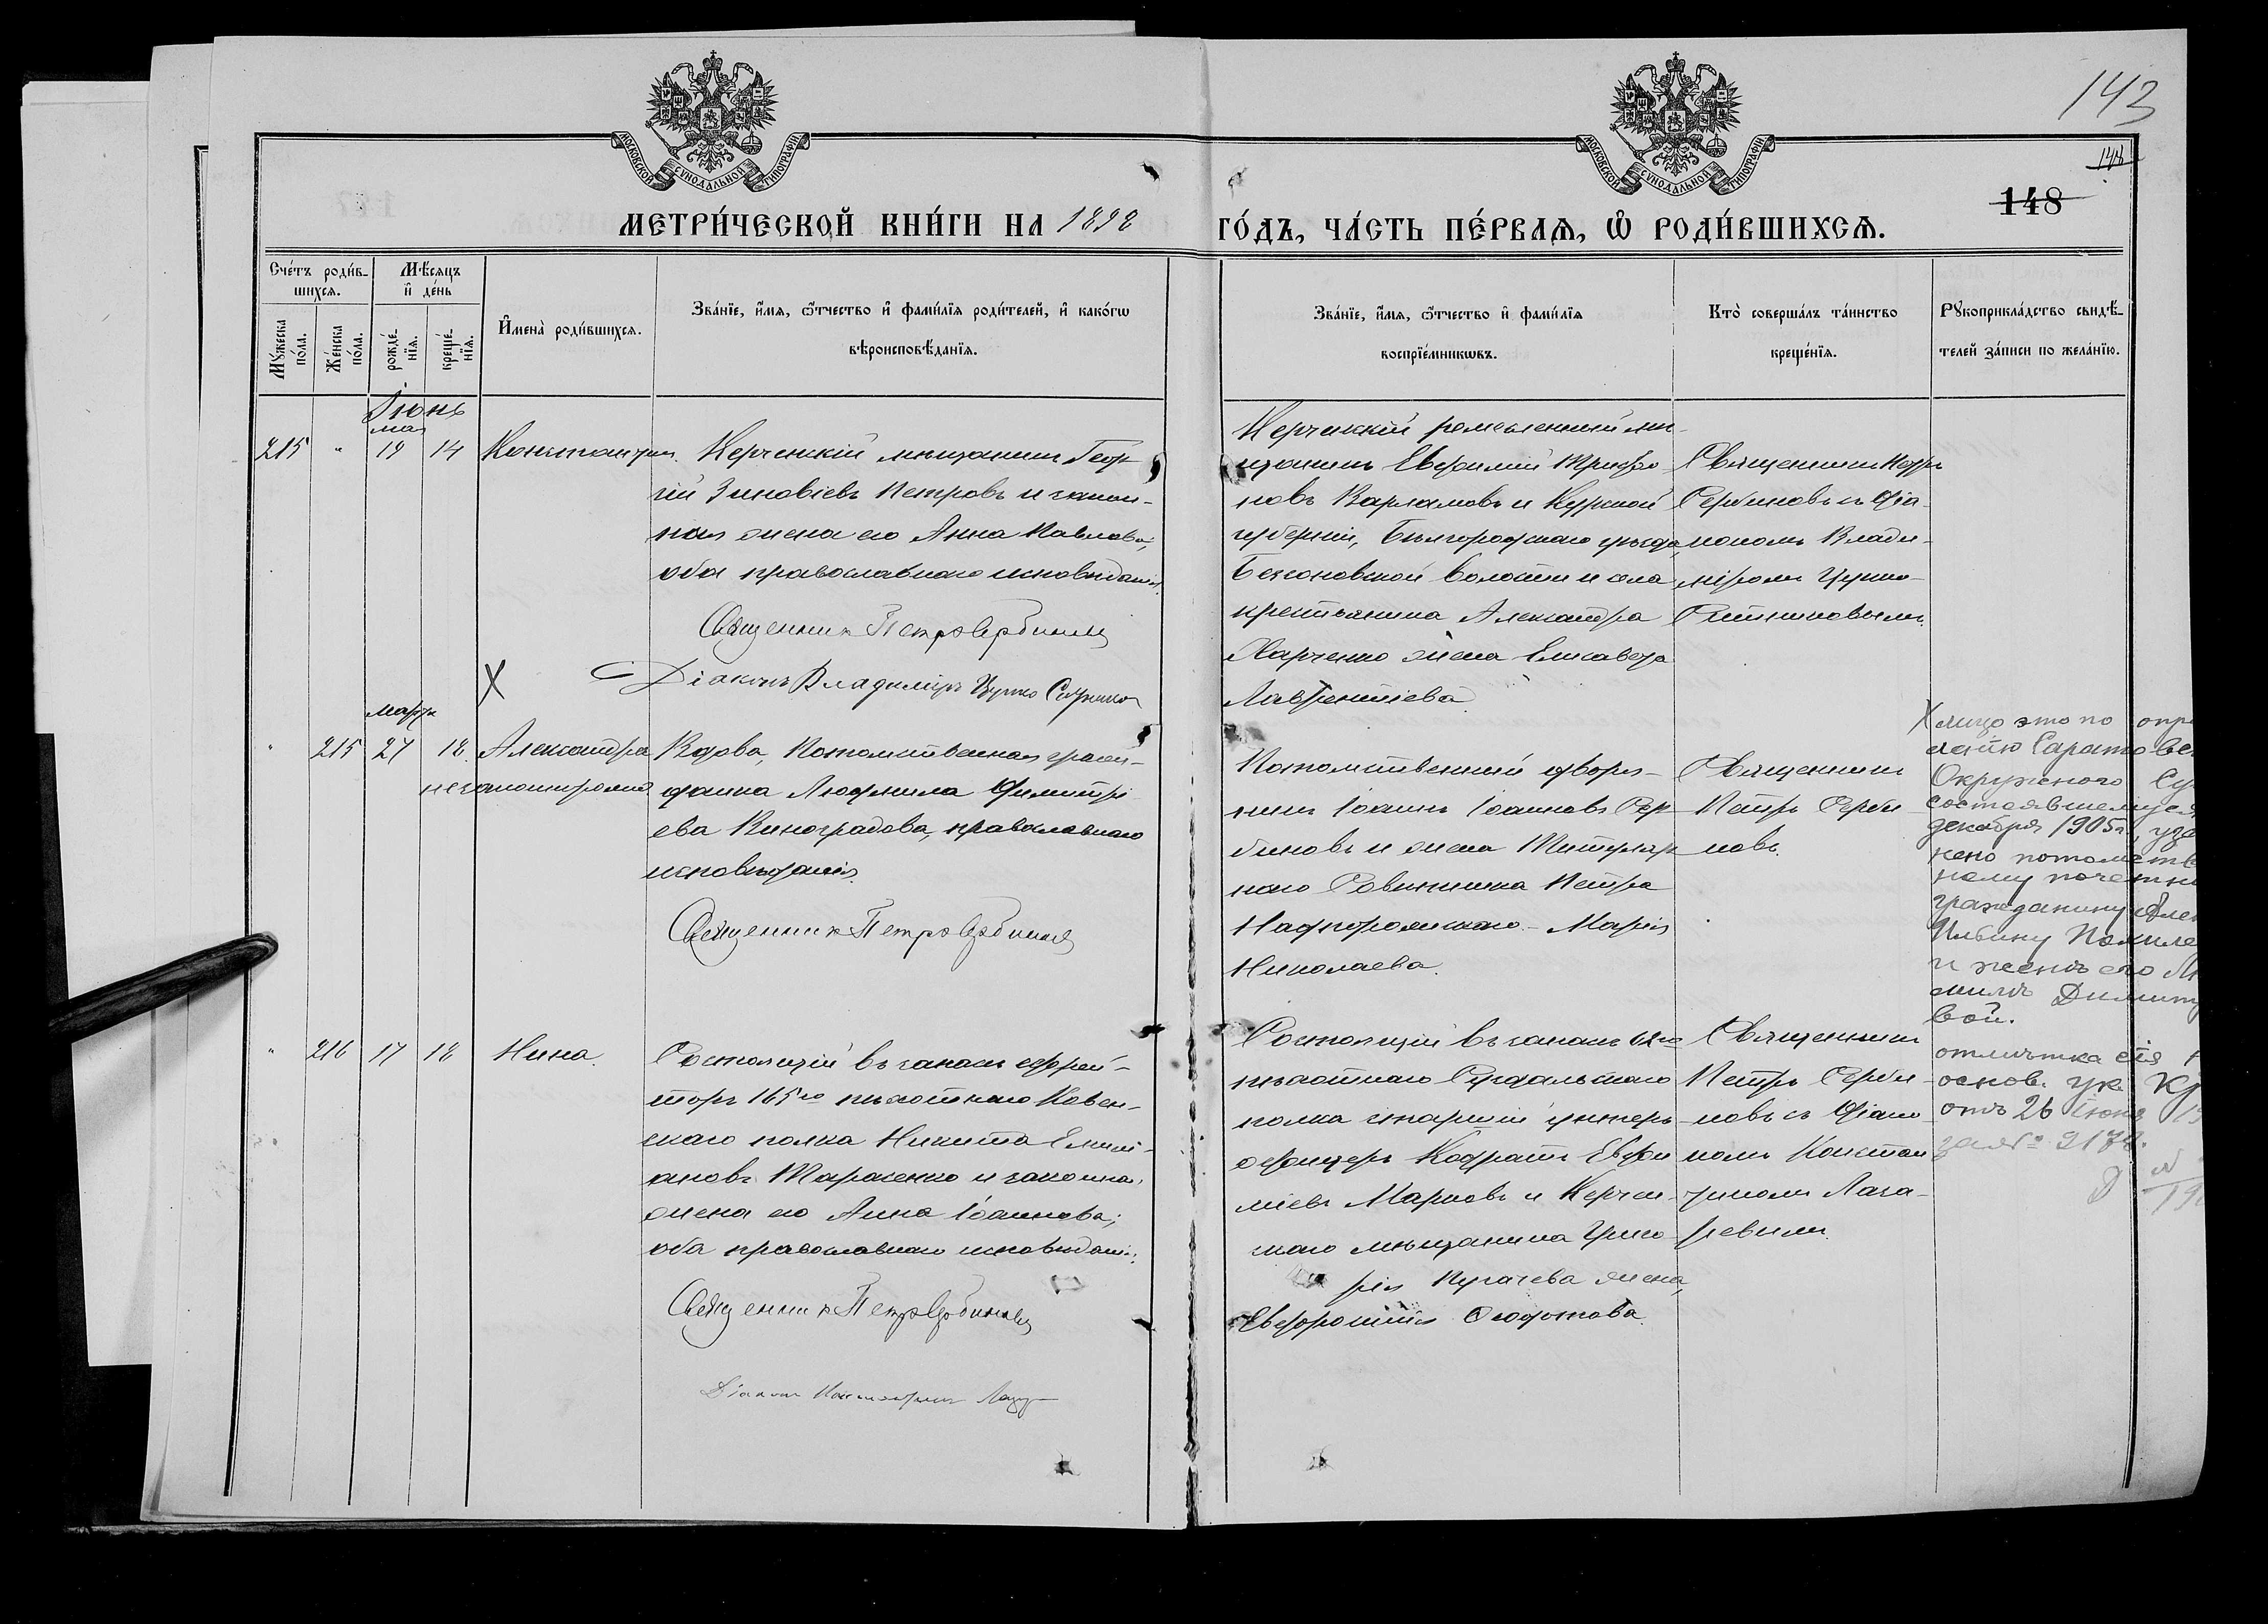 143
148
148
МОСКОВСКОЙ СѴНОДАЛЬНОЙ ТИПОГРАФІИ.
МОСКОВСКОЙ СѴНОДАЛЬНОЙ ТИПОГРАФІИ.
МЕТРИ́ЧЕСКОЙ КНИ́ГИ НА 1898 ГО́ДЪ, ЧА́СТЬ ПЕ́РВАѦ, Ѽ РОДИ́ВШИХСѦ.
Сче́тъ роди́в-
шихсѧ.
Мꙋ́жеска по́ла.
Же́нска по́ла.
Мѣ́сѧцъ и҆ де́нь
рожде́-
нїѧ.
креще́-
нїѧ.
И҆мена̀ роди́вшихсѧ.
Зва́нїе, и҆́мѧ, ѻ҆́тчество и҆ фами́лїѧ роди́телей, и҆ како́гѡ
вѣроисповѣ́данїѧ.
Зва́нїе, и҆́мѧ, ѻ҆́тчество и҆ фами́лїѧ
воспрїе́мникѡвъ.
Кто̀ соверша́лъ та́инство
креще́нїѧ.
Рꙋкоприкла́дство свидѣ́-
телей за́писи по жела́нїю.
Іюнь
мая
215 " 19 14 Константинъ.
Керченскій мѣщанинъ Геор-
гій Зиновіевъ Петровъ и закон-
ная жена его Анна Павлова;
оба православнаго исповѣданія.
Священникъ Петръ Сербиновъ
Діаконъ Владиміръ Цушко Ситников
Керченскій ремесленный мѣ-
щанинъ Евфимій Трифо-
новъ Варламовъ и Курской
губерніи, Бѣлгородскаго уѣзда,
Бессоновской волости и села
крестьянина Александра
Харченко жена Елисавета
Лаврентіева.
Священникъ Петръ
Сербиновъ съ діа-
кономъ Влади-
міромъ Цушко-
Ситниковымъ.
Х
марта
" 215 27 18. Александра
незаконнорожд.
Вдова, Потомственная граж-
данка Людмила Димитрі-
ева Виноградова, православнаго
исповѣданія.
Священникъ Петръ Сербиновъ
Потомственный дворя-
нинъ Іоаннъ Іоанновъ Сер-
биновъ и жена Титуляр-
наго Совѣтника Петра
Надпорожскаго - Марія
Николаева.
Священникъ
Петръ Серби-
новъ.
Х лицо это по опре
ленію Саратовс
Окружного Су
состоявшемуся
декабря 1905 г., узa
нено потомств
ному почетно
гражданину Але
Ильину Пожиле
и женѣ его Лю
милѣ Димитр
вой.
отмѣтка сія н
основ. ук.
отъ 26 іюня
за № 9178.
" 216 17 18 Нина.
Состоящій въ запасѣ ефрей-
торъ 165го пѣхотнаго Ковен-
скаго полка Никита Емель-
яновъ Тарасенко и законная
жена его Анна Іоаннова;
оба православнаго исповѣданія.
Священникъ Петръ Сербиновъ
Діаконъ Константинъ Лазар
Состоящій въ запасѣ 62го
пѣхотнаго Суздальскаго
полка старшій унтеръ-
офицеръ Кодратъ Евфи-
міевъ Марковъ и Керчен-
скаго мѣщанина Григо-
рія Пугачева жена,
Евфросинія Федотова.
Священникъ
Петръ Серби-
новъ съ діако-
номъ Констан-
тиномъ Лаза-
ревымъ.